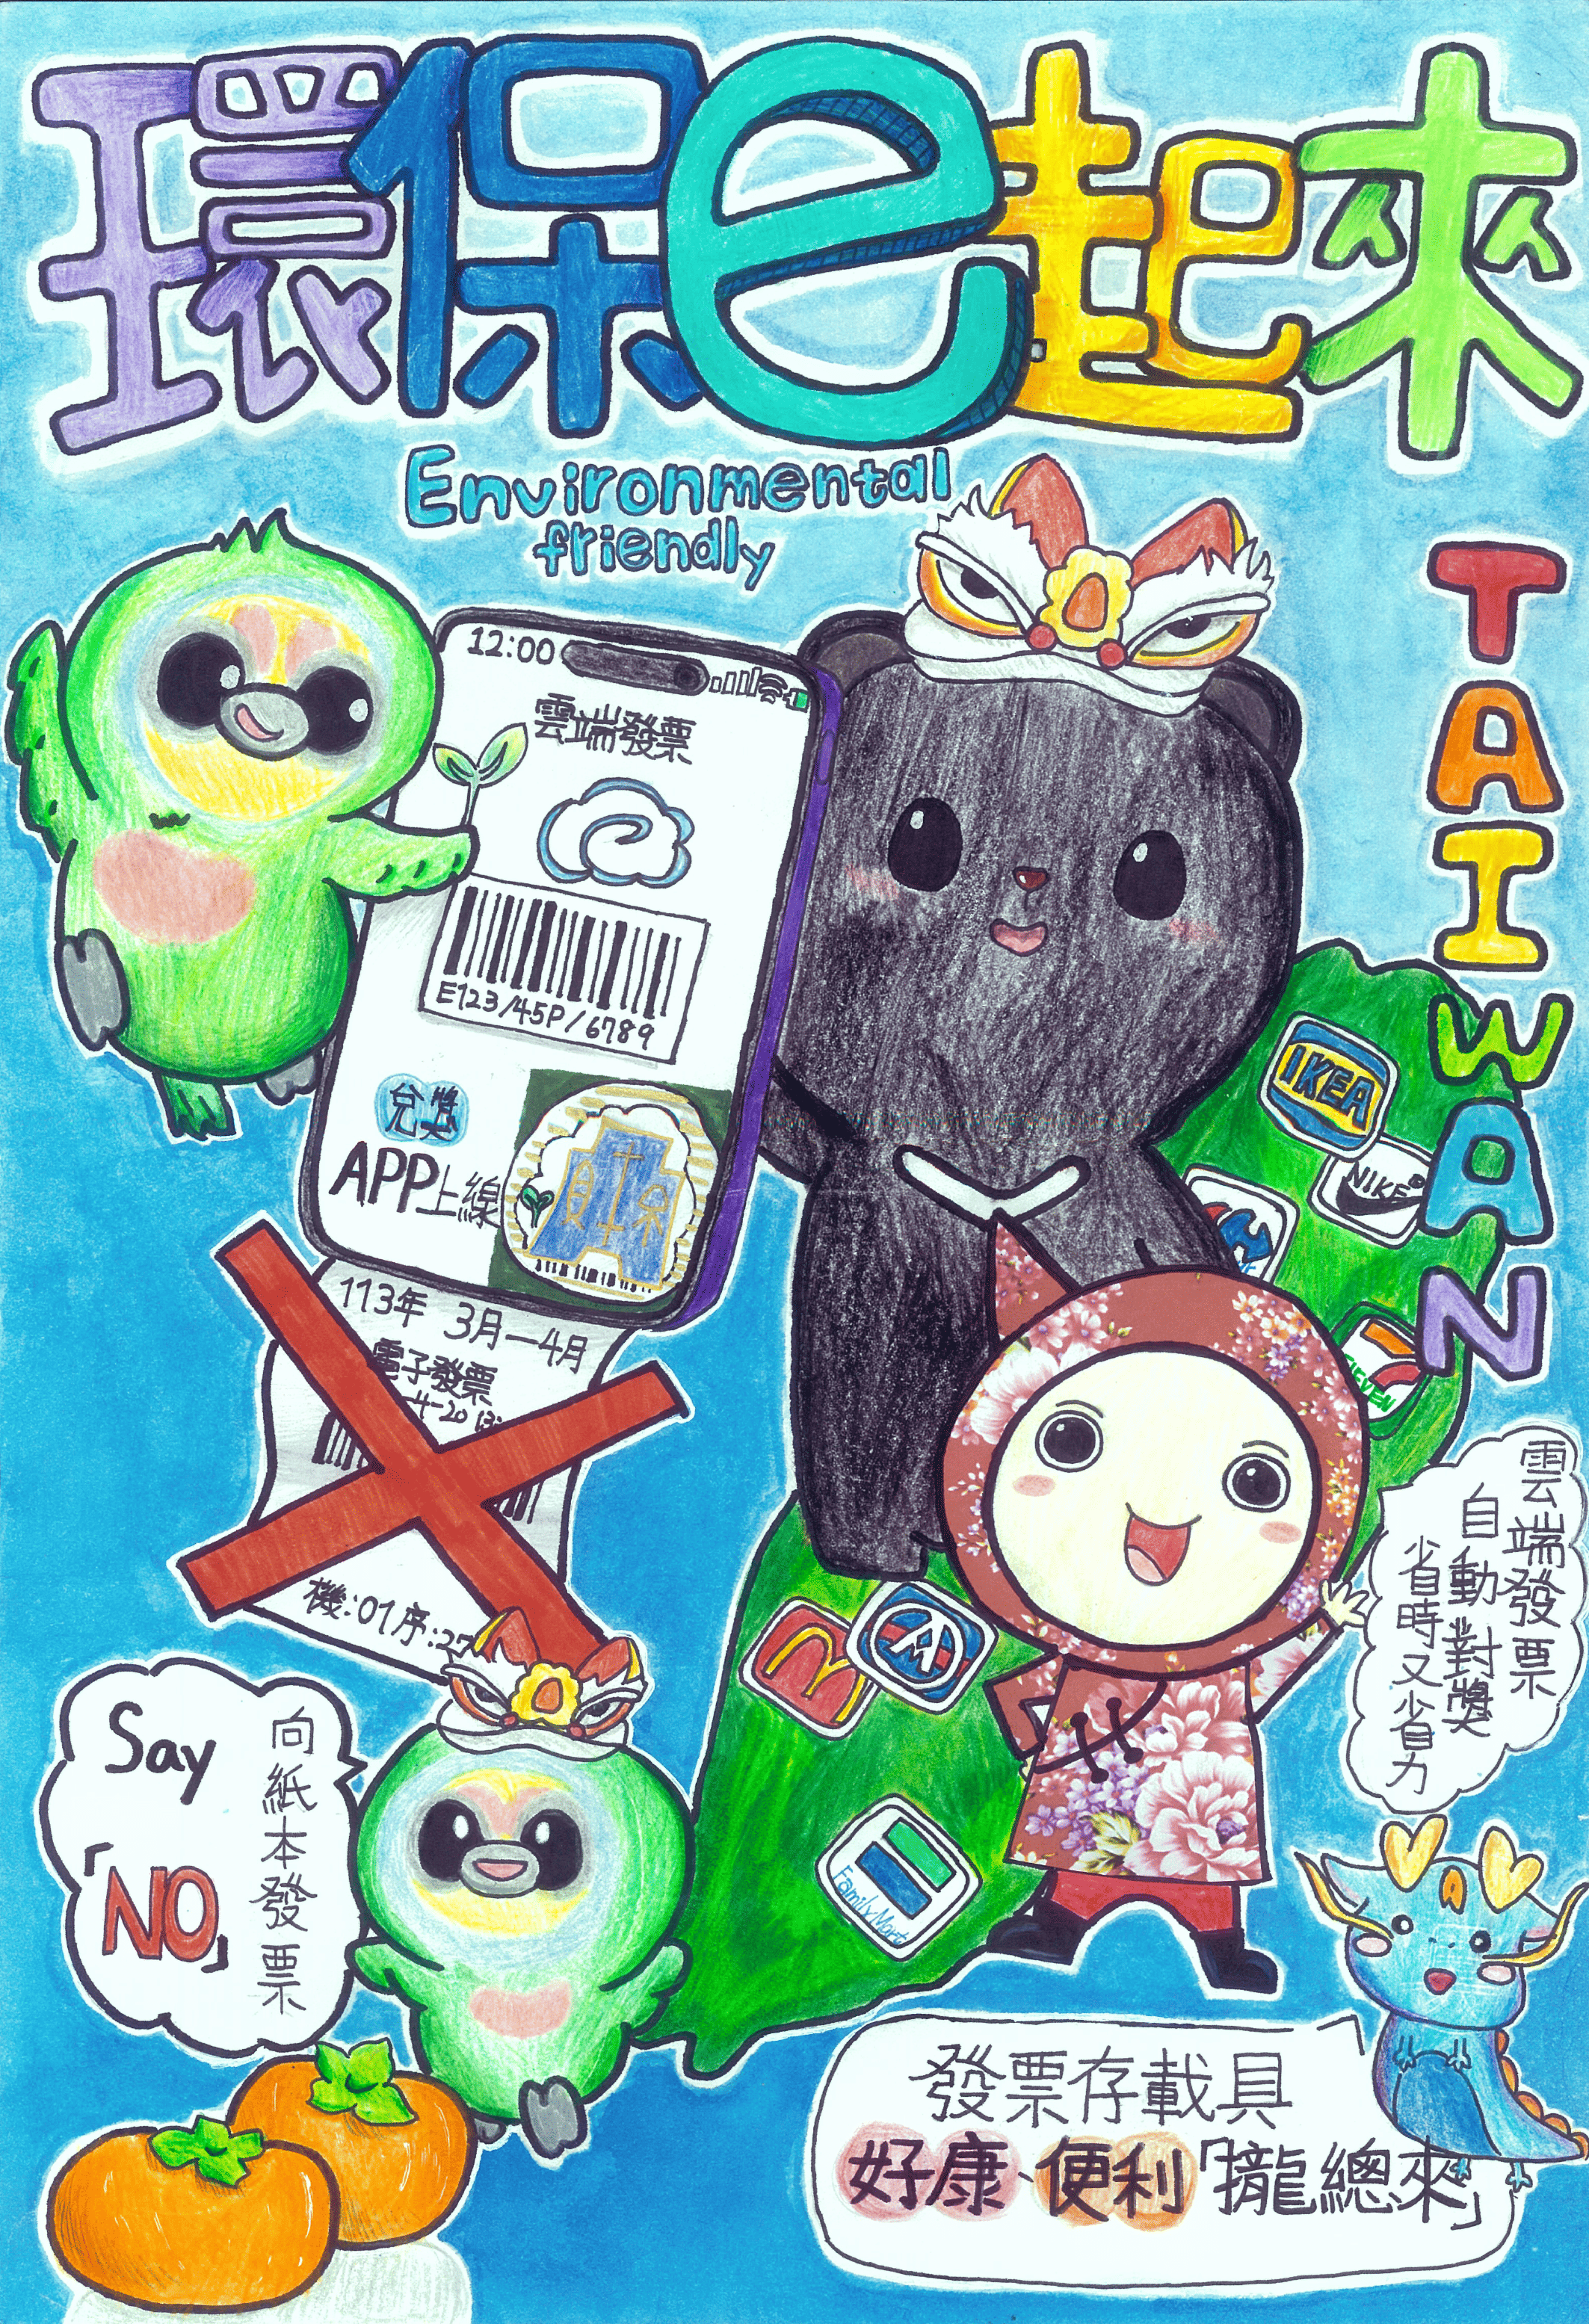 環保e起來
Environmental
friendly
TAIWAN
12:00
雲端發票
E123/45P/6789
兌獎
APP上線
財
113年 3月-4月
電子發票
機:01序:27
IKEA
NIKE
FamilyMart
雲端發票
自動對獎
省時又省力
Say
「NO」
向紙本發票
發票存載具
好康、便利「攏總來」